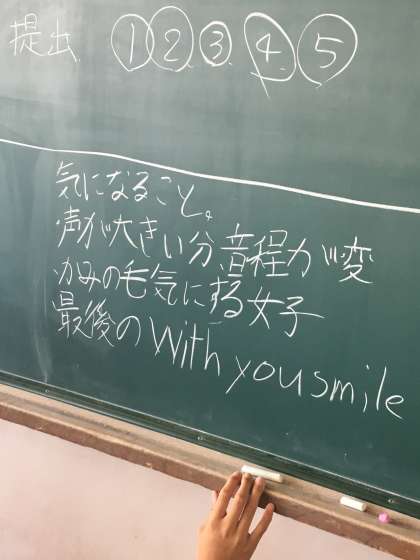 提出 ① ② ③ ④ ⑤
気になること。
声が大きい分、音程が変
かみの毛気にする女子
最後のWith you smile